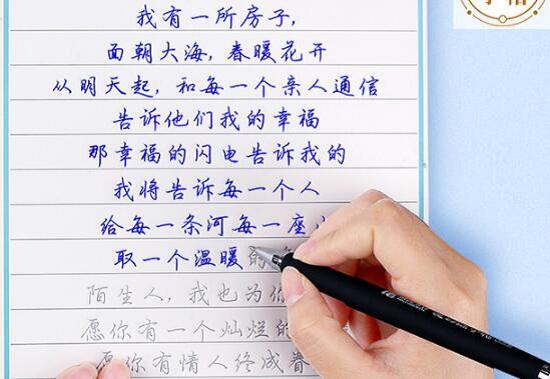 我有一所房子,
面朝大海, 春暖花开
从明天起, 和每一个亲人通信
告诉他们我的幸福
那幸福的闪电告诉我的
我将告诉每一个人
给每一条河每一座
取一个温暖的
陌生人, 我也为你
愿你有一个灿烂的
愿你有情人终成眷